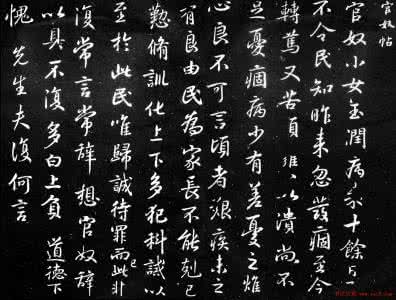 官奴帖
官奴小女玉潤病来十餘日了
不令民知昨来忽發痼至今
轉篤又苦頭癰〻以潰尚不
足憂痼病少有差憂之燋
心良不可言頃者艱疾未之
有良由民為家長不能剋己
懃脩訓化上下多犯科誡以
至於此民唯歸誠待罪而已此非
復常言常辭想官奴辭
以具不復多白上負道德下
愧先生夫復何言